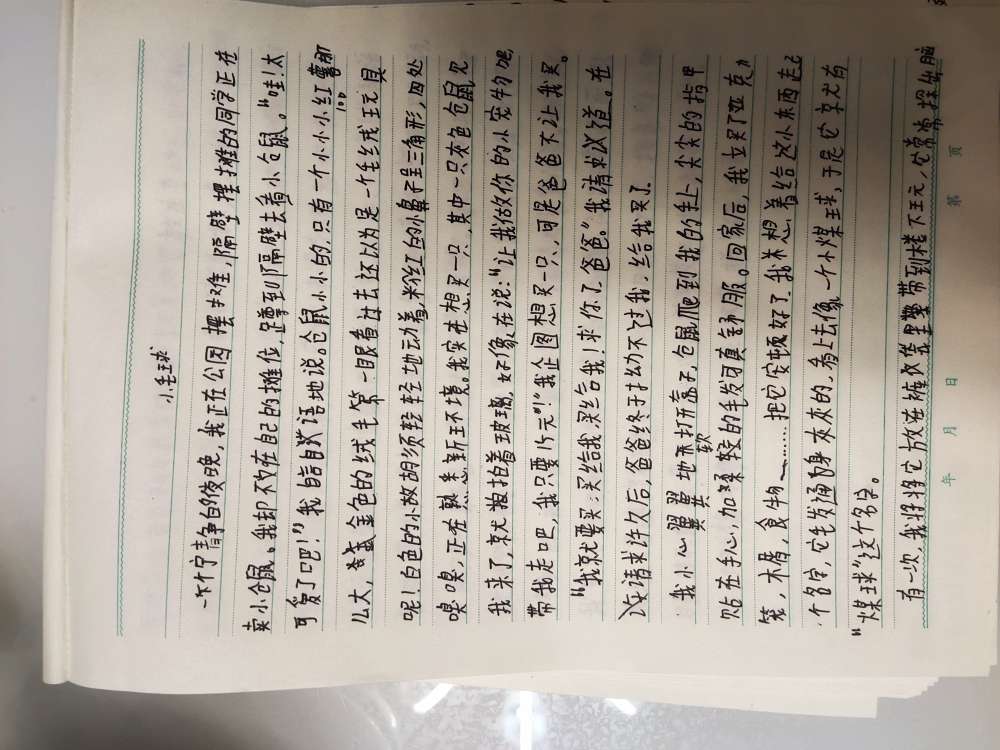 小毛球
一个宁静的傍晚，我正在公园摆摊，隔壁摆摊的同学正在
卖小仓鼠。我却不在自己的摊位，跑到隔壁去看小仓鼠。“哇！太
可爱了巴！”我自言自语地说。仓鼠小小的，只有一个小小红薯那
么大，金色的绒毛第一眼看过去还以为是一个毛线球玩具
呢！白色的小胡须轻轻地动着，粉红的小鼻子呈三角形，四处
嗅嗅，正在熟悉新环境。我实在想买一只，其中一只灰色仓鼠见
我来了，京尤拍着玻璃，好像在说：“让我做你的小宠物吧，
带我走吧，我只要15元！”我企图想买一只，可是爸爸不让我买。
“我就要买！买给我买给我！求你了爸爸。”我请求说道。在
请求许久后，爸爸终于拗不过我，给我买了
我小心翼翼地打开盖子，仓鼠爬到我的手上，尖尖的指甲
贴在手心，加软轻的毛发可真舒服。回家后，我立买了亚克力
笼，木屑，食物……把它安顿好了。我想着给这小东西起
个名字，它毛发通身灰灰的，看上去像一个小煤球，于是它享尤有
“煤球”这个名字。
有一次，我将它放在裤袋里带到楼下玩，它常常探出脑
第 页
年 月 日